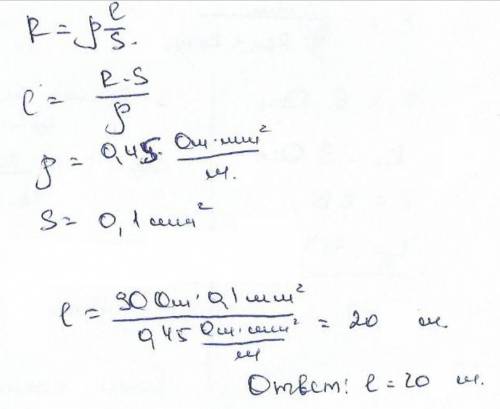 R = ρ l/S.
l = R·S/ρ
ρ = 0,45 Ом·мм²/м.
S = 0,1 мм²
l = 90 Ом · 0,1 мм² / 0,45 Ом·мм²/м = 20 м.
Ответ: l = 20 м.